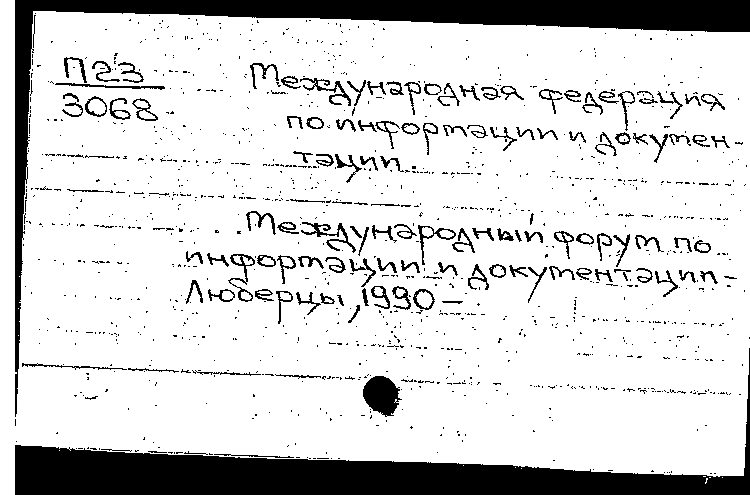 П23
3068
Международная федерация
по информации и докумен-
тации.
Международный форум по
информации и документации-
Люберцы, 1990-